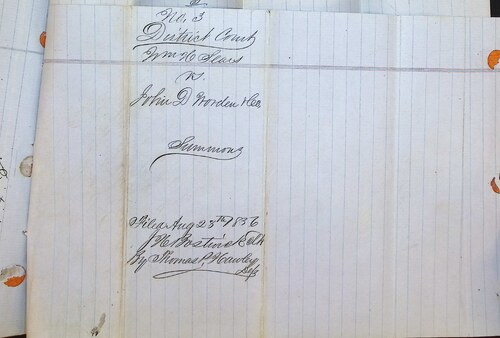 No. 3
District Court
Wm H Sears
vs.
John D Worden & Co.
Summons
Filed Aug 25th 1856
J H Bostwick Clk
By Thomas P. Hawley
Dep